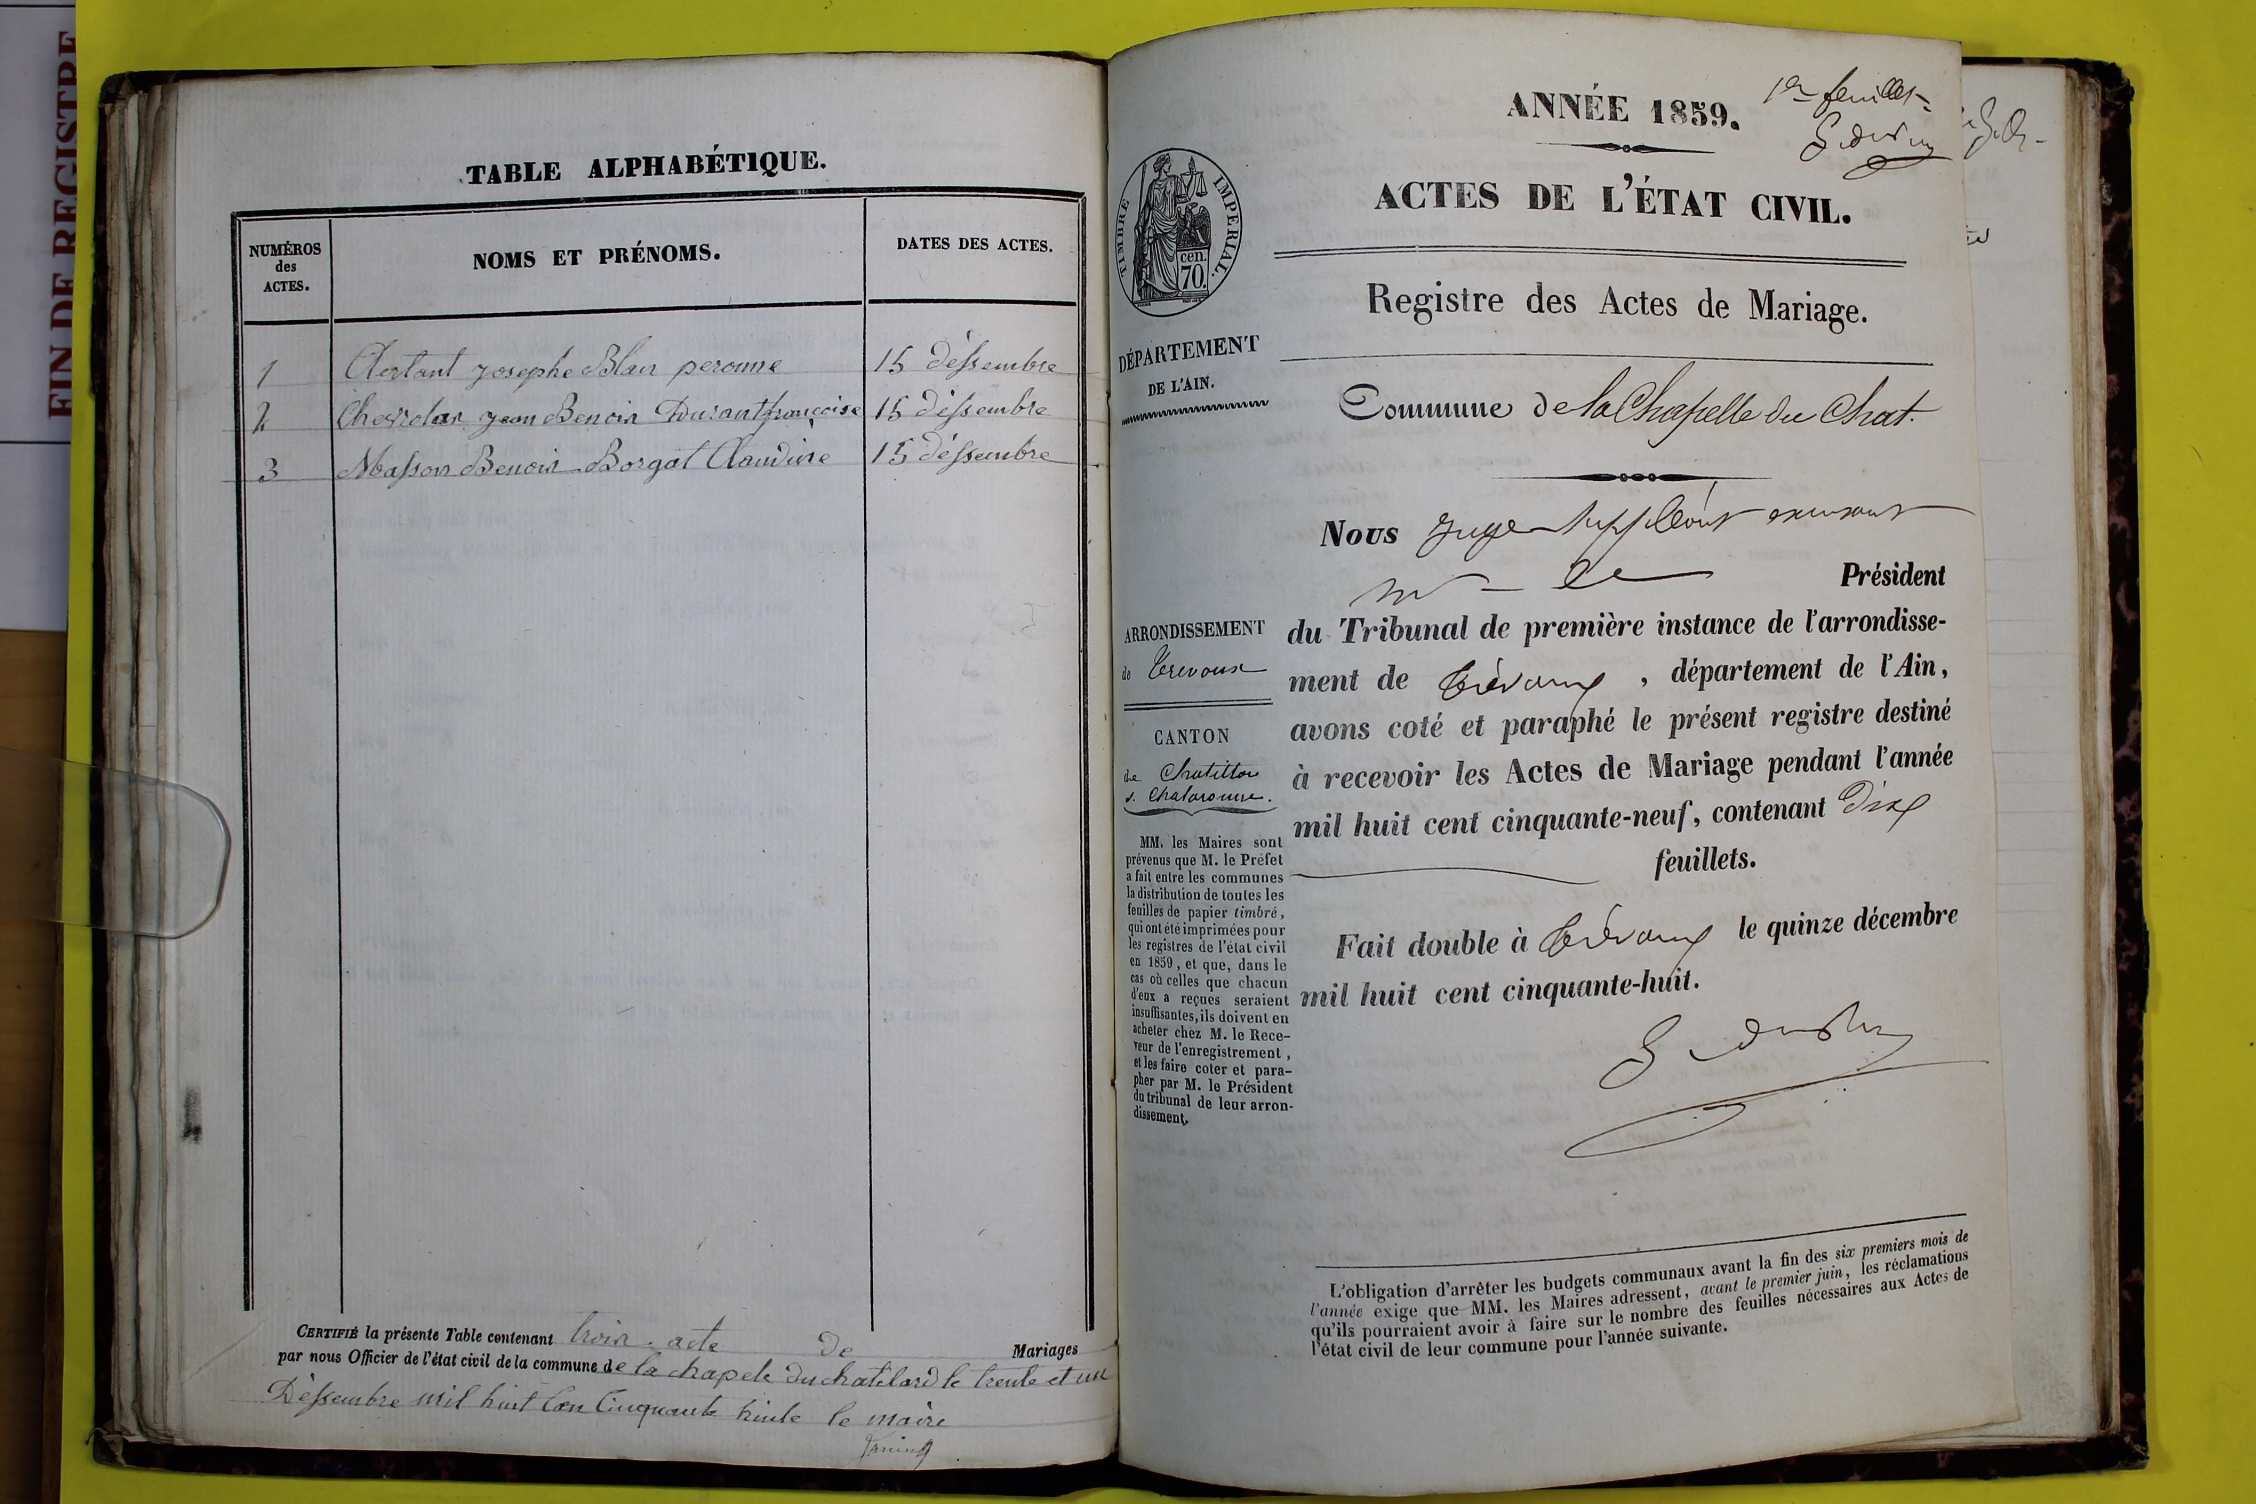 FIN DE REGISTRE
TABLE ALPHABÉTIQUE.
NUMÉROS des ACTES.
NOMS ET PRÉNOMS.
DATES DES ACTES.
1 josephe Blan peronne 15 déssembre
2 jean Benoin Durant françoise 15 déssembre
3 Masson Benoin Borgat Claudine 15 déssembre
CERTIFIÉ la présente Table contenant troin acte de Mariages
par nous Officier de l'état civil de la commune de la chapele du chatelard le trente et un
Déssembre mil huit Cen Cinquante huite le maire
ANNÉE 1859.
1er feuillet
ACTES DE L'ÉTAT CIVIL.
TIMBRE IMPERIAL.
cen.
70.
Registre des Actes de Mariage.
DÉPARTEMENT
DE L'AIN.
Commune de la Chapelle du Chat.
Nous juge suppléant
Président
ARRONDISSEMENT
de Trevoux
CANTON
de Chatillon
s. Chalaronne.
MM. les Maires sont
prévenus que M. le Préfet
a fait entre les communes
la distribution de toutes les
feuilles de papier timbré,
qui ont été imprimées pour
les registres de l'état civil
en 1859, et que, dans le
cas où celles que chacun
d'eux a reçues seraient
insuffisantes, ils doivent en
acheter chez M. le Rece-
veur de l'enregistrement,
et les faire coter et para-
pher par M. le Président
du tribunal de leur arron-
dissement.
du Tribunal de première instance de l'arrondisse-
ment de Trévoux, département de l'Ain,
avons coté et paraphé le présent registre destiné
à recevoir les Actes de Mariage pendant l'année
mil huit cent cinquante-neuf, contenant Dix
feuillets.
Fait double à Trévoux le quinze décembre
mil huit cent cinquante-huit.
L'obligation d'arrêter les budgets communaux avant la fin des six premiers mois de
l'année exige que MM. les Maires adressent, avant le premier juin, les réclamations
qu'ils pourraient avoir à faire sur le nombre des feuilles nécessaires aux Actes de
l'état civil de leur commune pour l'année suivante.